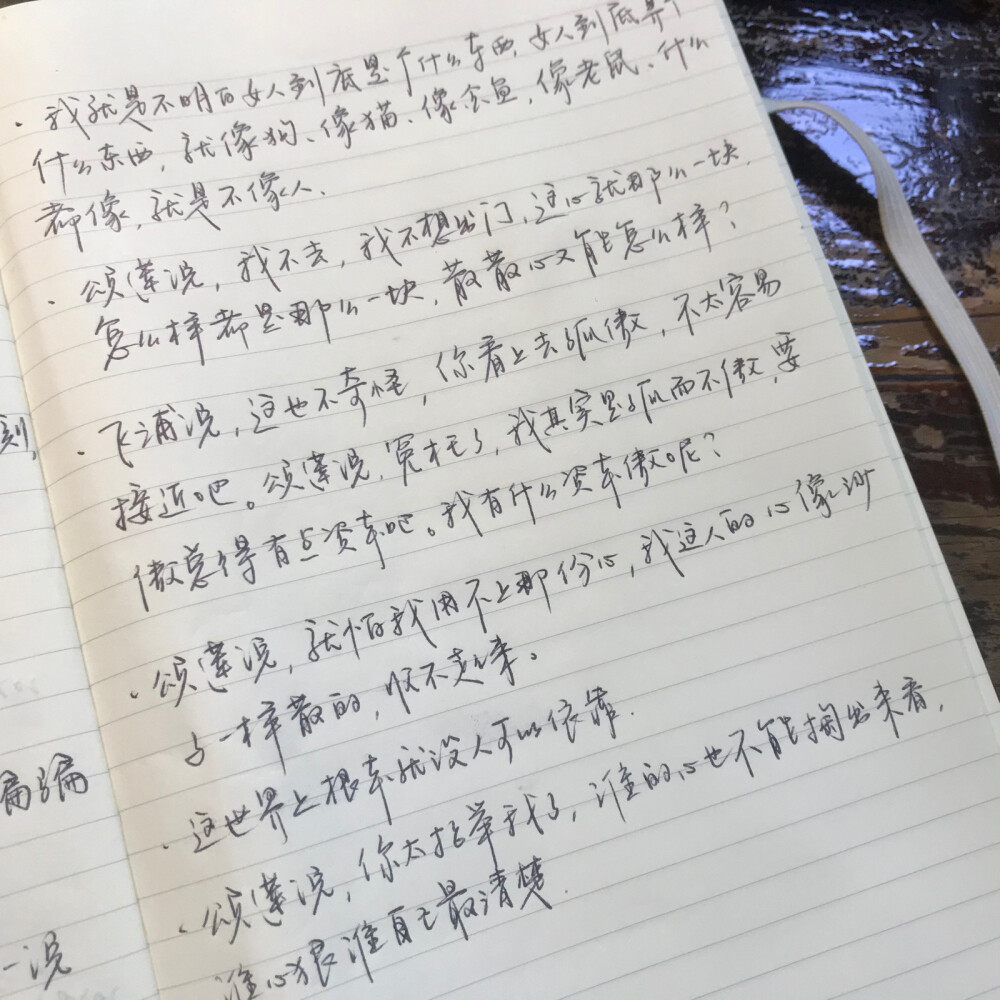 · 我就是不明白女人到底是个什么东西，女人到底是个
什么东西，就像狗、像猫、像金鱼、像老鼠、什么
都像，就是不像人.
· 颂莲说，我不去，我不想出门，这心就那么一块，
怎么样都是那么一块，散散心又能怎么样？
· 飞浦说，这也不奇怪，你看上去孤傲，不太容易
接近吧。颂莲说，冤枉了，我其实是孤而不傲，要
傲总得有点资本吧。我有什么资本傲呢？
· 颂莲说，就怕我用不上那份心，我这人的心像沙
子一样散的，收不起来。
· 这世界上根本就没人可以依靠.
· 颂莲说，你太抬举我了，谁的心也不能掏出来看，
谁心狠谁自己最清楚.
刻，
扁
一说